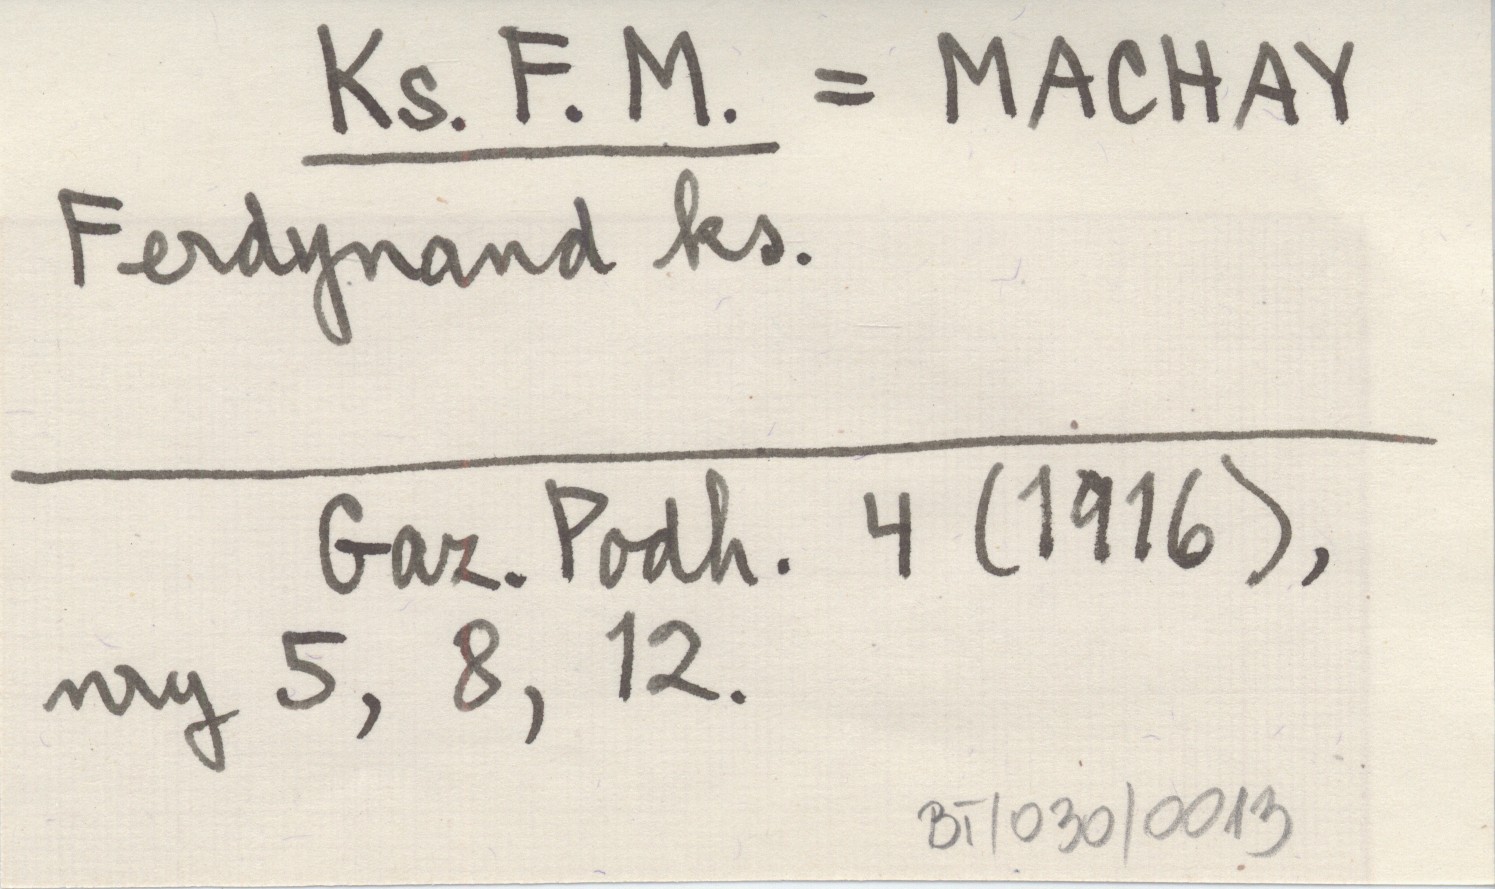 Ks. F. M. = MACHAY
Ferdynand ks.
Gaz. Podh. 4 (1916),
nry 5, 8, 12.
BT/030/0013